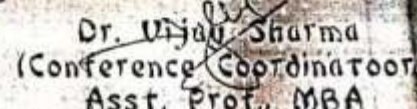 Dr. Vijay Sharma
(Conference Coordinatoor
Asst. Prof., MBA